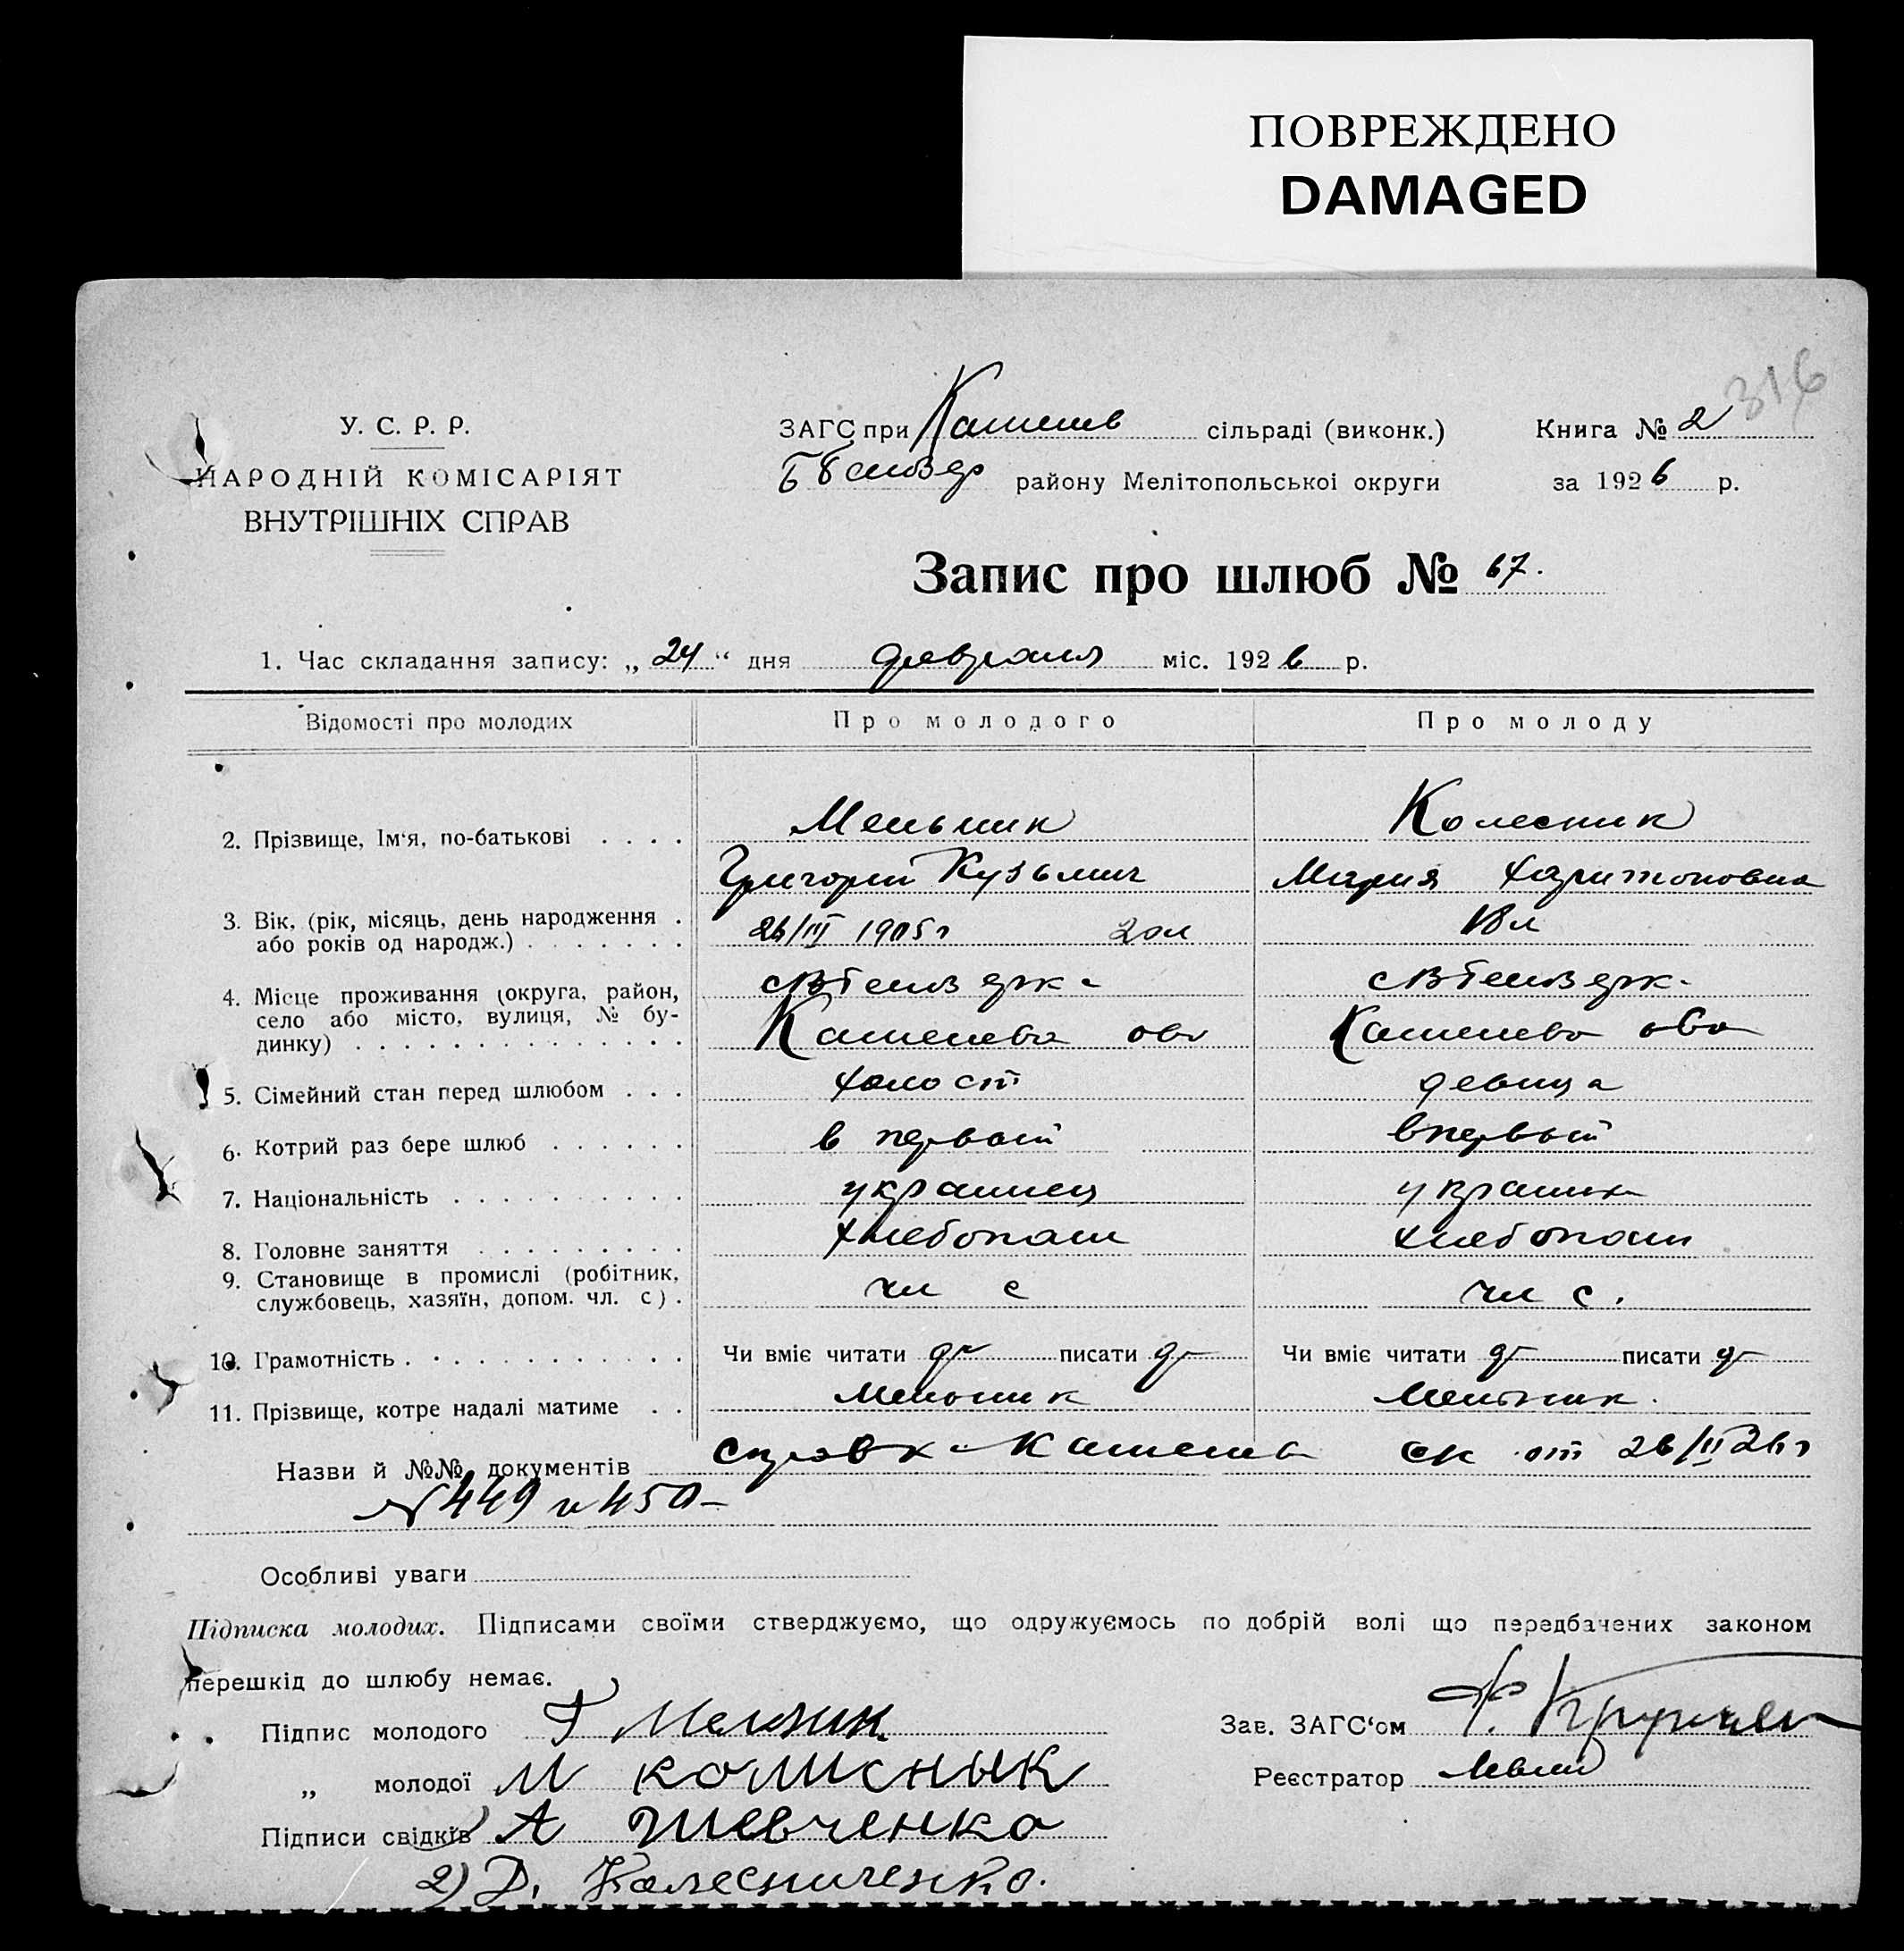 ПОВРЕЖДЕНО
DAMAGED
316
У. С. Р. Р.
НАРОДНІЙ КОМІСАРІЯТ
ВНУТРІШНІХ СПРАВ
ЗАГС при сільраді (виконк.)
Книга № 2
району Мелітопольської округи
за 1926 р.
Запис про шлюб № 67.
1. Час складання запису: „24“ дня февраля міс. 1926 р.
Відомості про молодих Про молодого Про молоду
2. Прізвище, Ім‘я, по-батькові . . . . Мельник Колесник
Григорий Кузьмич Мария Харитоновна
3. Вік, (рік, місяць, день народження . 26/III 1905 г 20 л 18 л
або років од народж.) . . . . . . .
4. Місце проживання (округа, район,
село або місто, вулиця, № бу-
динку) . . . . . . . . . . . . . .
5. Сімейний стан перед шлюбом . . . холост девица
6. Котрий раз бере шлюб . . . . . . в первый впервый
7. Національність . . . . . . . . . . украинец украинк
8. Головне заняття . . . . . . . . . хлебопаш хлебопаш
9. Становище в промислі (робітник,
службовець, хазяїн, допом. чл. с) . чл с чл с.
10. Грамотність . . . . . . . . . . . Чи вміє читати да писати да Чи вміє читати да писати да
11. Прізвище, котре надалі матиме . . Мельник Мельник.
Назви й №№ документів справк ск от 26/II 26 г
N 449 и 450 –
Особливі уваги
Підписка молодих. Підписами своїми стверджуємо, що одружуємось по добрій волі що передбачених законом
перешкід до шлюбу немає.
Підпис молодого Г Мельник
Зав. ЗАГС‘ом
„ молодої М колиснык
Реєстратор
Підписи свідків А Шевченко
2) Д. Колесниченко.